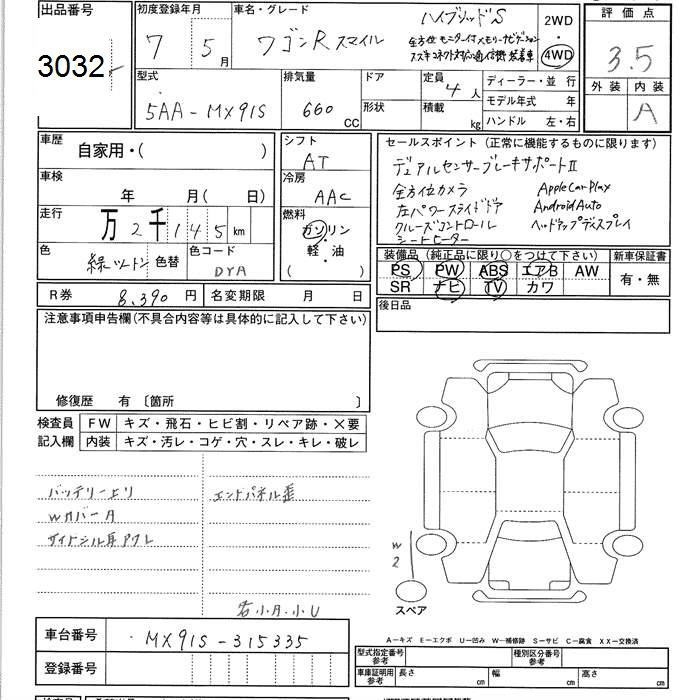 出品番号
3032
初度登録年月
7 年 5 月
車名・グレード
ワゴンR スマイル
ハイブリッドS
全方位モニター付メモリーナビゲーション
スズキコネクト対応通信機装着車
2WD
4WD
評価点
3.5
外装 内装
A
型式
5AA-MX91S
排気量
660 CC
ドア
形状
定員
4 人
積載
kg
ディーラー・並行
モデル年式 年
ハンドル 左・右
車歴
自家用・( )
車検
年 月( 日)
走行
万 2 千 1 4 5 km
色
緑ツートン
色替
色コード
DYA
シフト
AT
冷房
AAC
燃料
ガソリン
軽・油
( )
セールスポイント (正常に機能するものに限ります)
デュアルセンサーブレーキサポートII
全方位カメラ AppleCarPlay
左パワースライドドア AndroidAuto
クルーズコントロール ヘッドアップディスプレイ
シートヒーター
装備品 (純正品に限り○をつけて下さい)
新車保証書
PS PW ABS エアB AW
SR ナビ TV カワ
有・無
R券 8,390 円
名変期限 月 日
後日品
注意事項申告欄(不具合内容等は具体的に記入して下さい)
修復歴 有 〔箇所 〕
検査員
記入欄
FW キズ・飛石・ヒビ割・リペア跡・×要
内装 キズ・汚レ・コゲ・穴・スレ・キレ・破レ
バッテリー上り
エンドパネル歪
Wカバー A
サイドシル耳アワレ
若小A.小U
W
2
スペア
A−キズ E−エクボ U−凹み W−補修跡 S−サビ C−腐食 XX−交換済
車台番号
MX91S-315335
登録番号
型式指定番号
参考
種別区分番号
参考
車庫証明用
参考
長さ cm
幅 cm
高さ cm